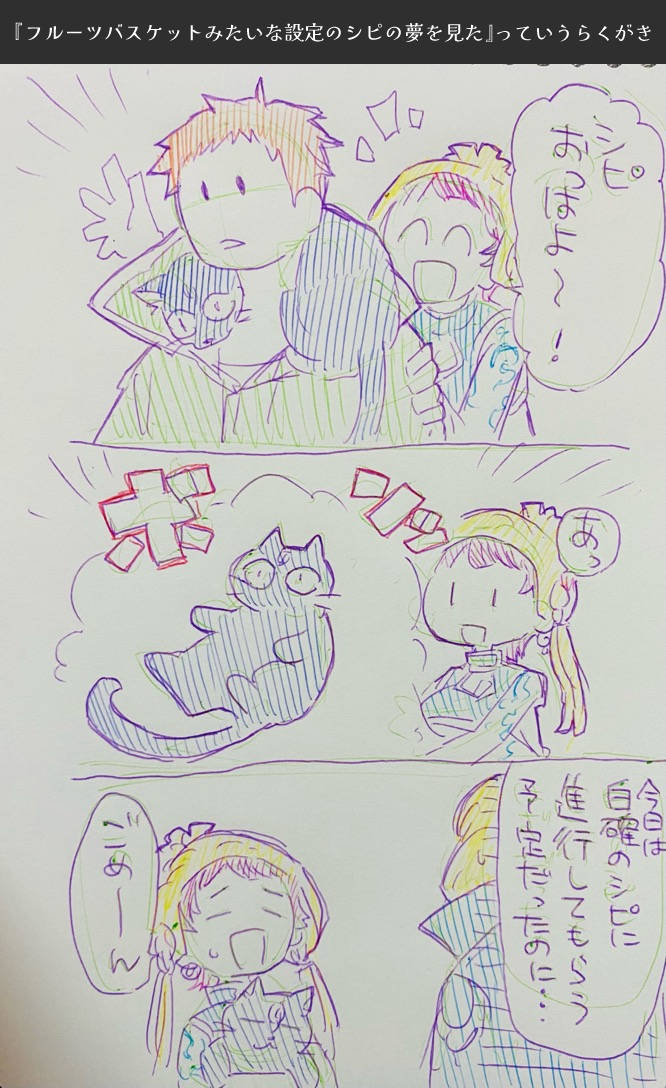 『フルーツバスケットみたいな設定のシピの夢を見た』っていうらくがき
シピ
おっはよ〜！
ボンッ
あっ
今日は
白確のシピに
進行してもらう
予定だったのに…
ごめーん